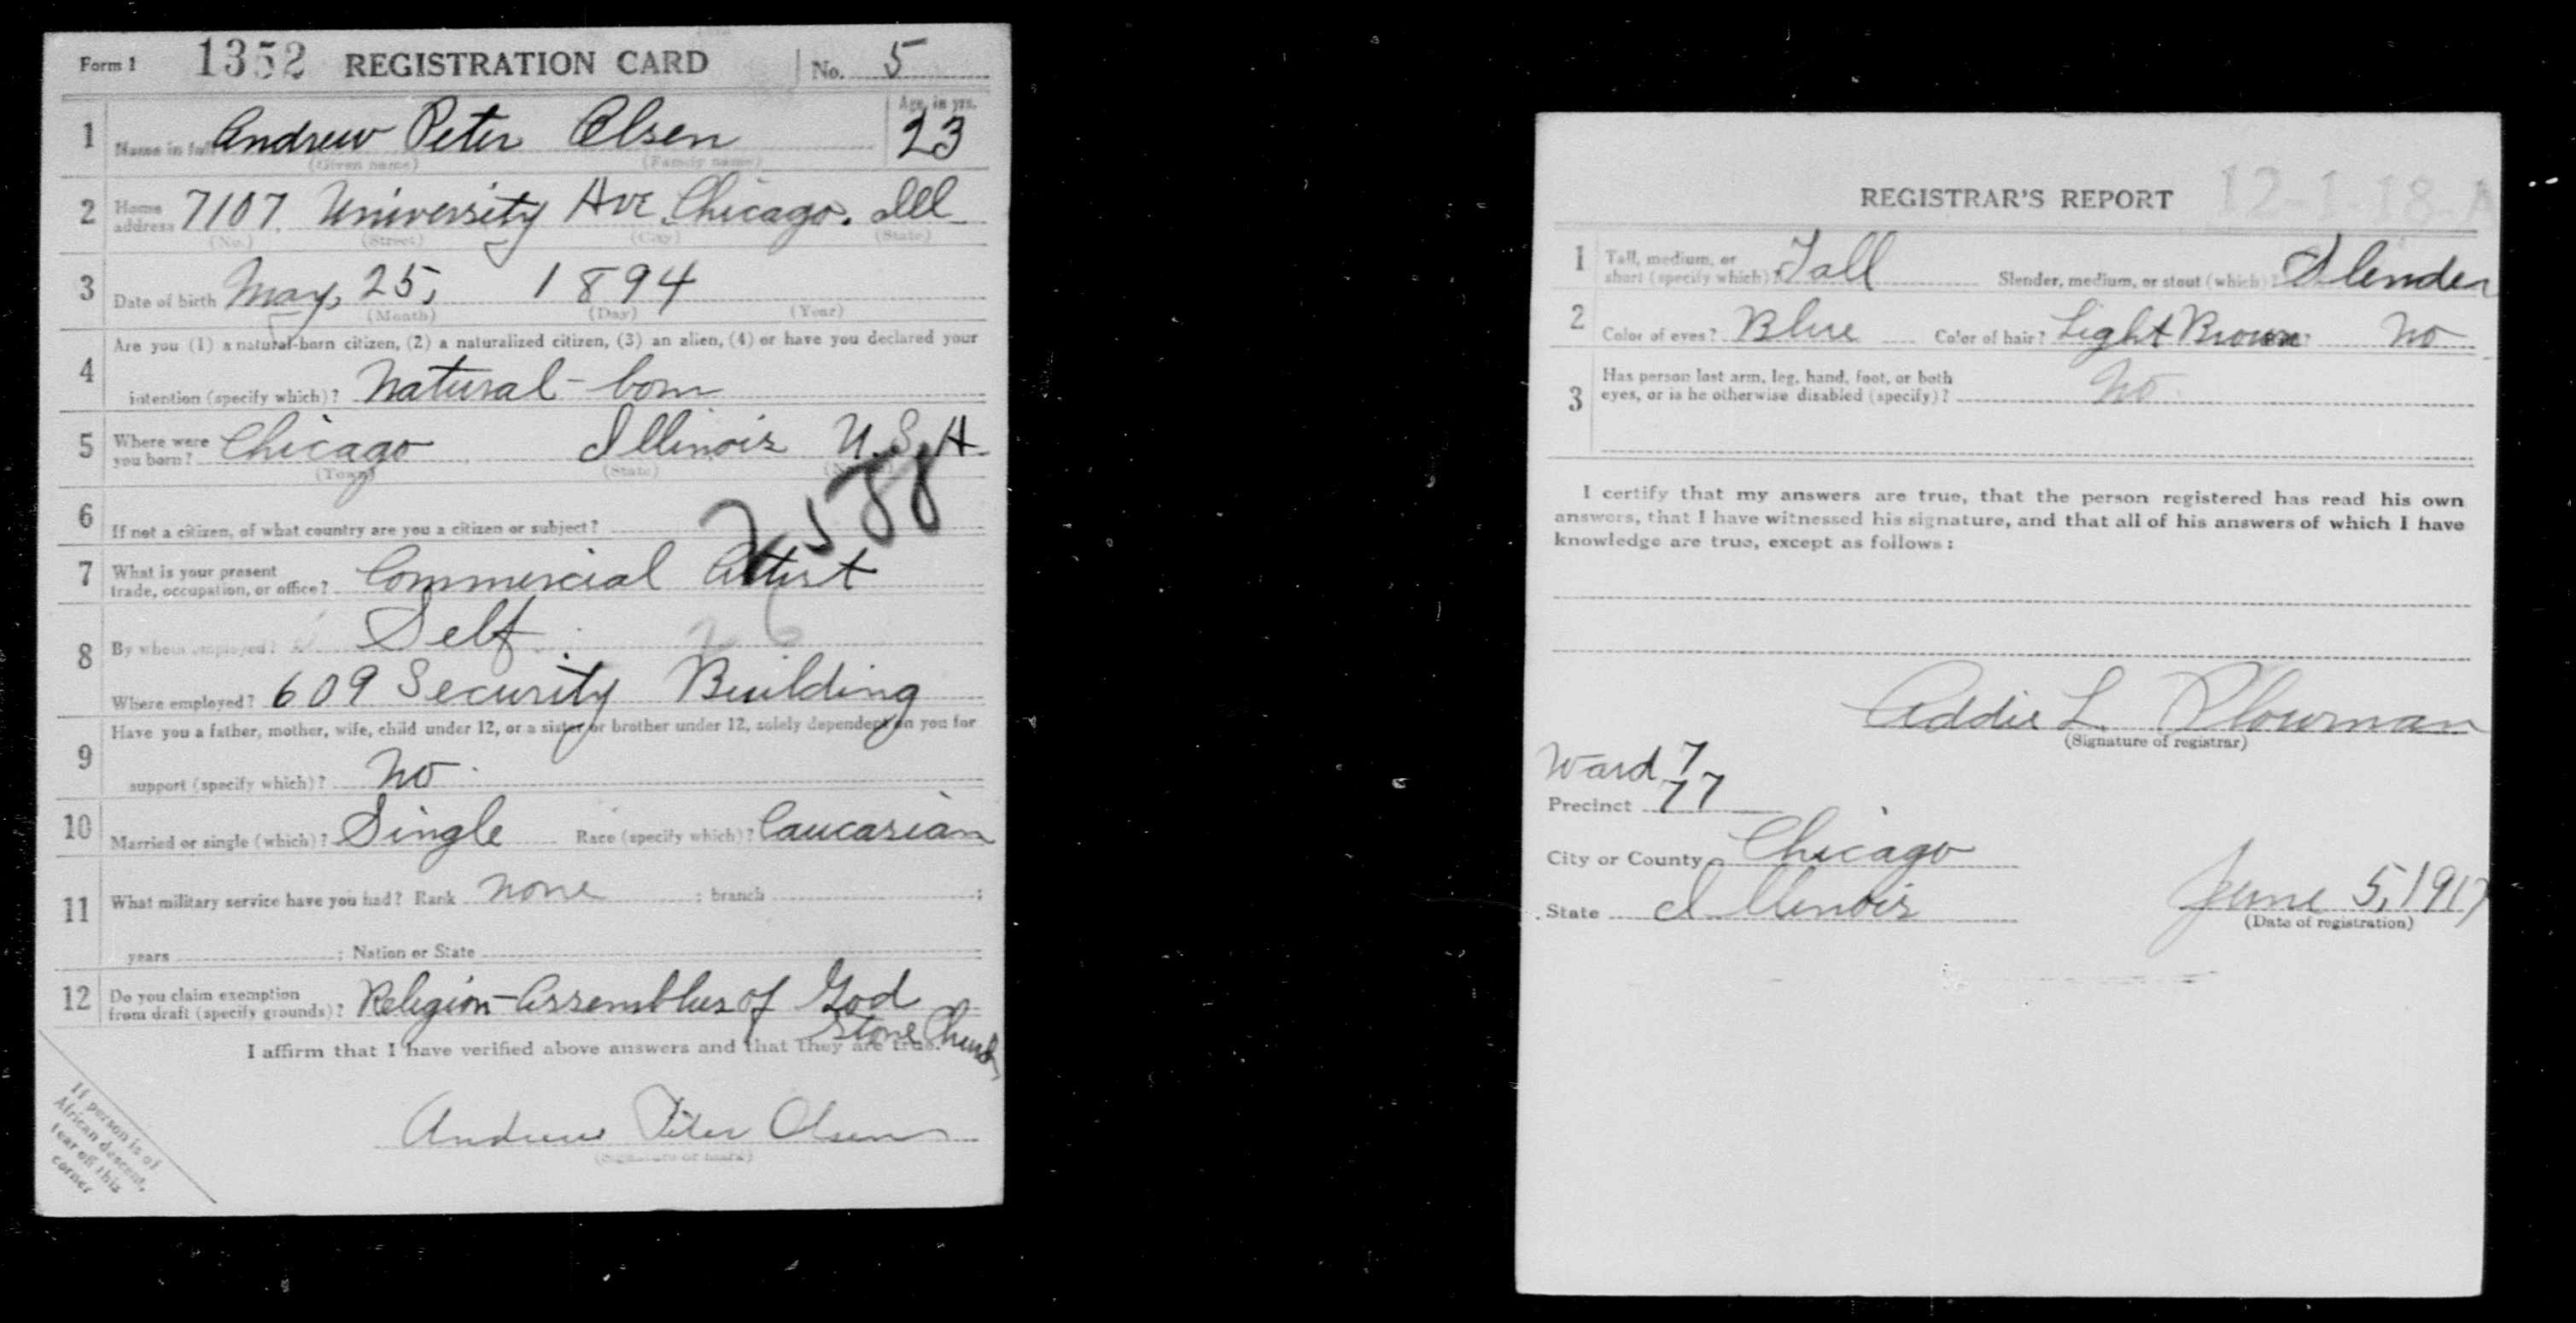 Form 1 1352 REGISTRATION CARD No. 5
1 Name in full Andrew Peter Olsen Age, in yrs. 23
(Given name) (Family name)
2 Home address 7107 University Ave Chicago. Ill
(No.) (Street) (City) (State)
3 Date of birth May, 25, 1894
(Month) (Day) (Year)
4 Are you (1) a natural-born citizen, (2) a naturalized citizen, (3) an alien, (4) or have you declared your
intention (specify which)? Natural-born
5 Where were you born? Chicago Illinois U.S.A
(Town) (State)
6 If not a citizen, of what country are you a citizen or subject?
7 What is your present trade, occupation, or office? Commercial Artist
8 By whom employed? Self
26
Where employed? 609 Security Building
9 Have you a father, mother, wife, child under 12, or a sister or brother under 12, solely dependent on you for
support (specify which)? No
10 Married or single (which)? Single Race (specify which)? Caucasian
11 What military service have you had? Rank none ; branch ;
years ; Nation or State
12 Do you claim exemption from draft (specify grounds)? Religion-Assemblies of God
Stone Church
I affirm that I have verified above answers and that they are true.
Andrew Peter Olsen
(Signature or mark)
If person is of
African descent,
tear off this
corner
REGISTRAR'S REPORT 12-1-18-A
1 Tall, medium, or short (specify which)? Tall Slender, medium, or stout (which)? Slender
2 Color of eyes? Blue Color of hair? Light Brown No
3 Has person lost arm, leg, hand, foot, or both
eyes, or is he otherwise disabled (specify)? No
I certify that my answers are true, that the person registered has read his own
answers, that I have witnessed his signature, and that all of his answers of which I have
knowledge are true, except as follows:
Addie L. Plowman
(Signature of registrar)
Ward 7
Precinct 77
City or County Chicago
State Illinois
June 5, 1917
(Date of registration)